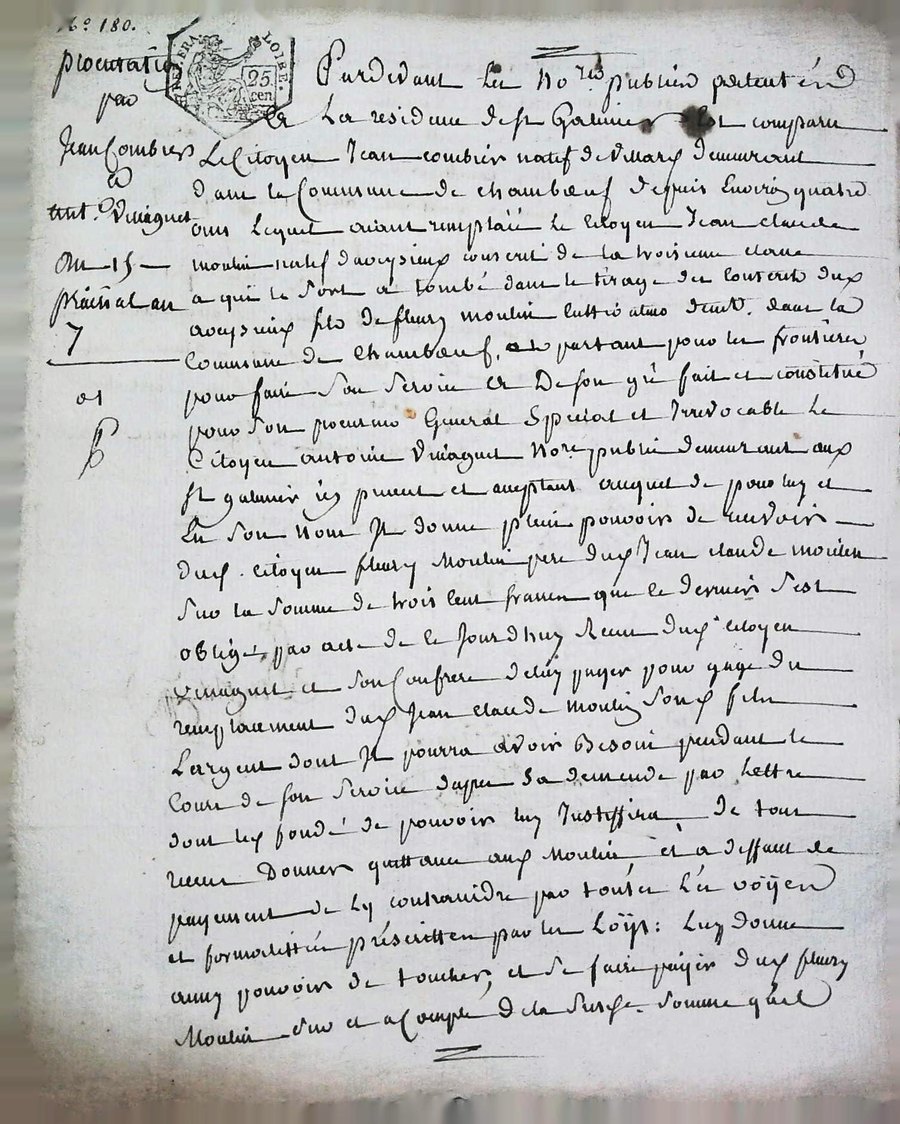 N.° 180.
procuration
par
Jean Combier
a
ant.e Vinagnet
Du 15
prairial an
7
ENREG. LOIRE.
25
cen
Pardevant les No.res publics patentés
a La residence de St Galmier Est comparu
Le Citoyen Jean combier natif de Villars demeurant
dans la Commune de chambœuf depuis Environ quatre
ans Lequel aiant remplacé Le Citoyen Jean claude
moulin natif daveysieux conscrit de la troisieme classe
a qui le sort a tombé dans le tirage des conscrits dud.
aveysieux fils de fleury moulin cultivateur demt. dans la
Commune de Chambœuf, et partant pour les frontières
pour faire son service et De son gré fait et constitué
pour son procureur General Special et Irrevocable Le
Citoyen antoine Vinagnet No.re public demeurant aud.
St galmier icy present et acceptant auquel de pour luy et
En son Nom Il donne plein pouvoir de recevoir
dud. citoyen fleury Moulin pere dud. Jean claude moulin
sur la somme de trois Cent francs que ce dernier s'est
obligé, par acte de ce Jourdhuy Recu dud. citoyen
Vinagnet et son Confrere de luy payer pour gage du
remplacement dud. Jean Claude Moulin son d. fils
L'argent dont Il pourra avoir Besoin pendant le
Cours de son service dapres sa demande par Lettre
dont led. fondé de pouvoir luy Justiffira, de tout
recu Donner quittance aud. Moulin, et a deffaut de
payement de Ly contraindre par toutes Les voÿes
et formalittés préscrittes par les Loÿs: Luy donne
aussy pouvoir de toucher, et se faire payer dud. fleury
Moulin sur et a Compte de la susd. somme qu'il